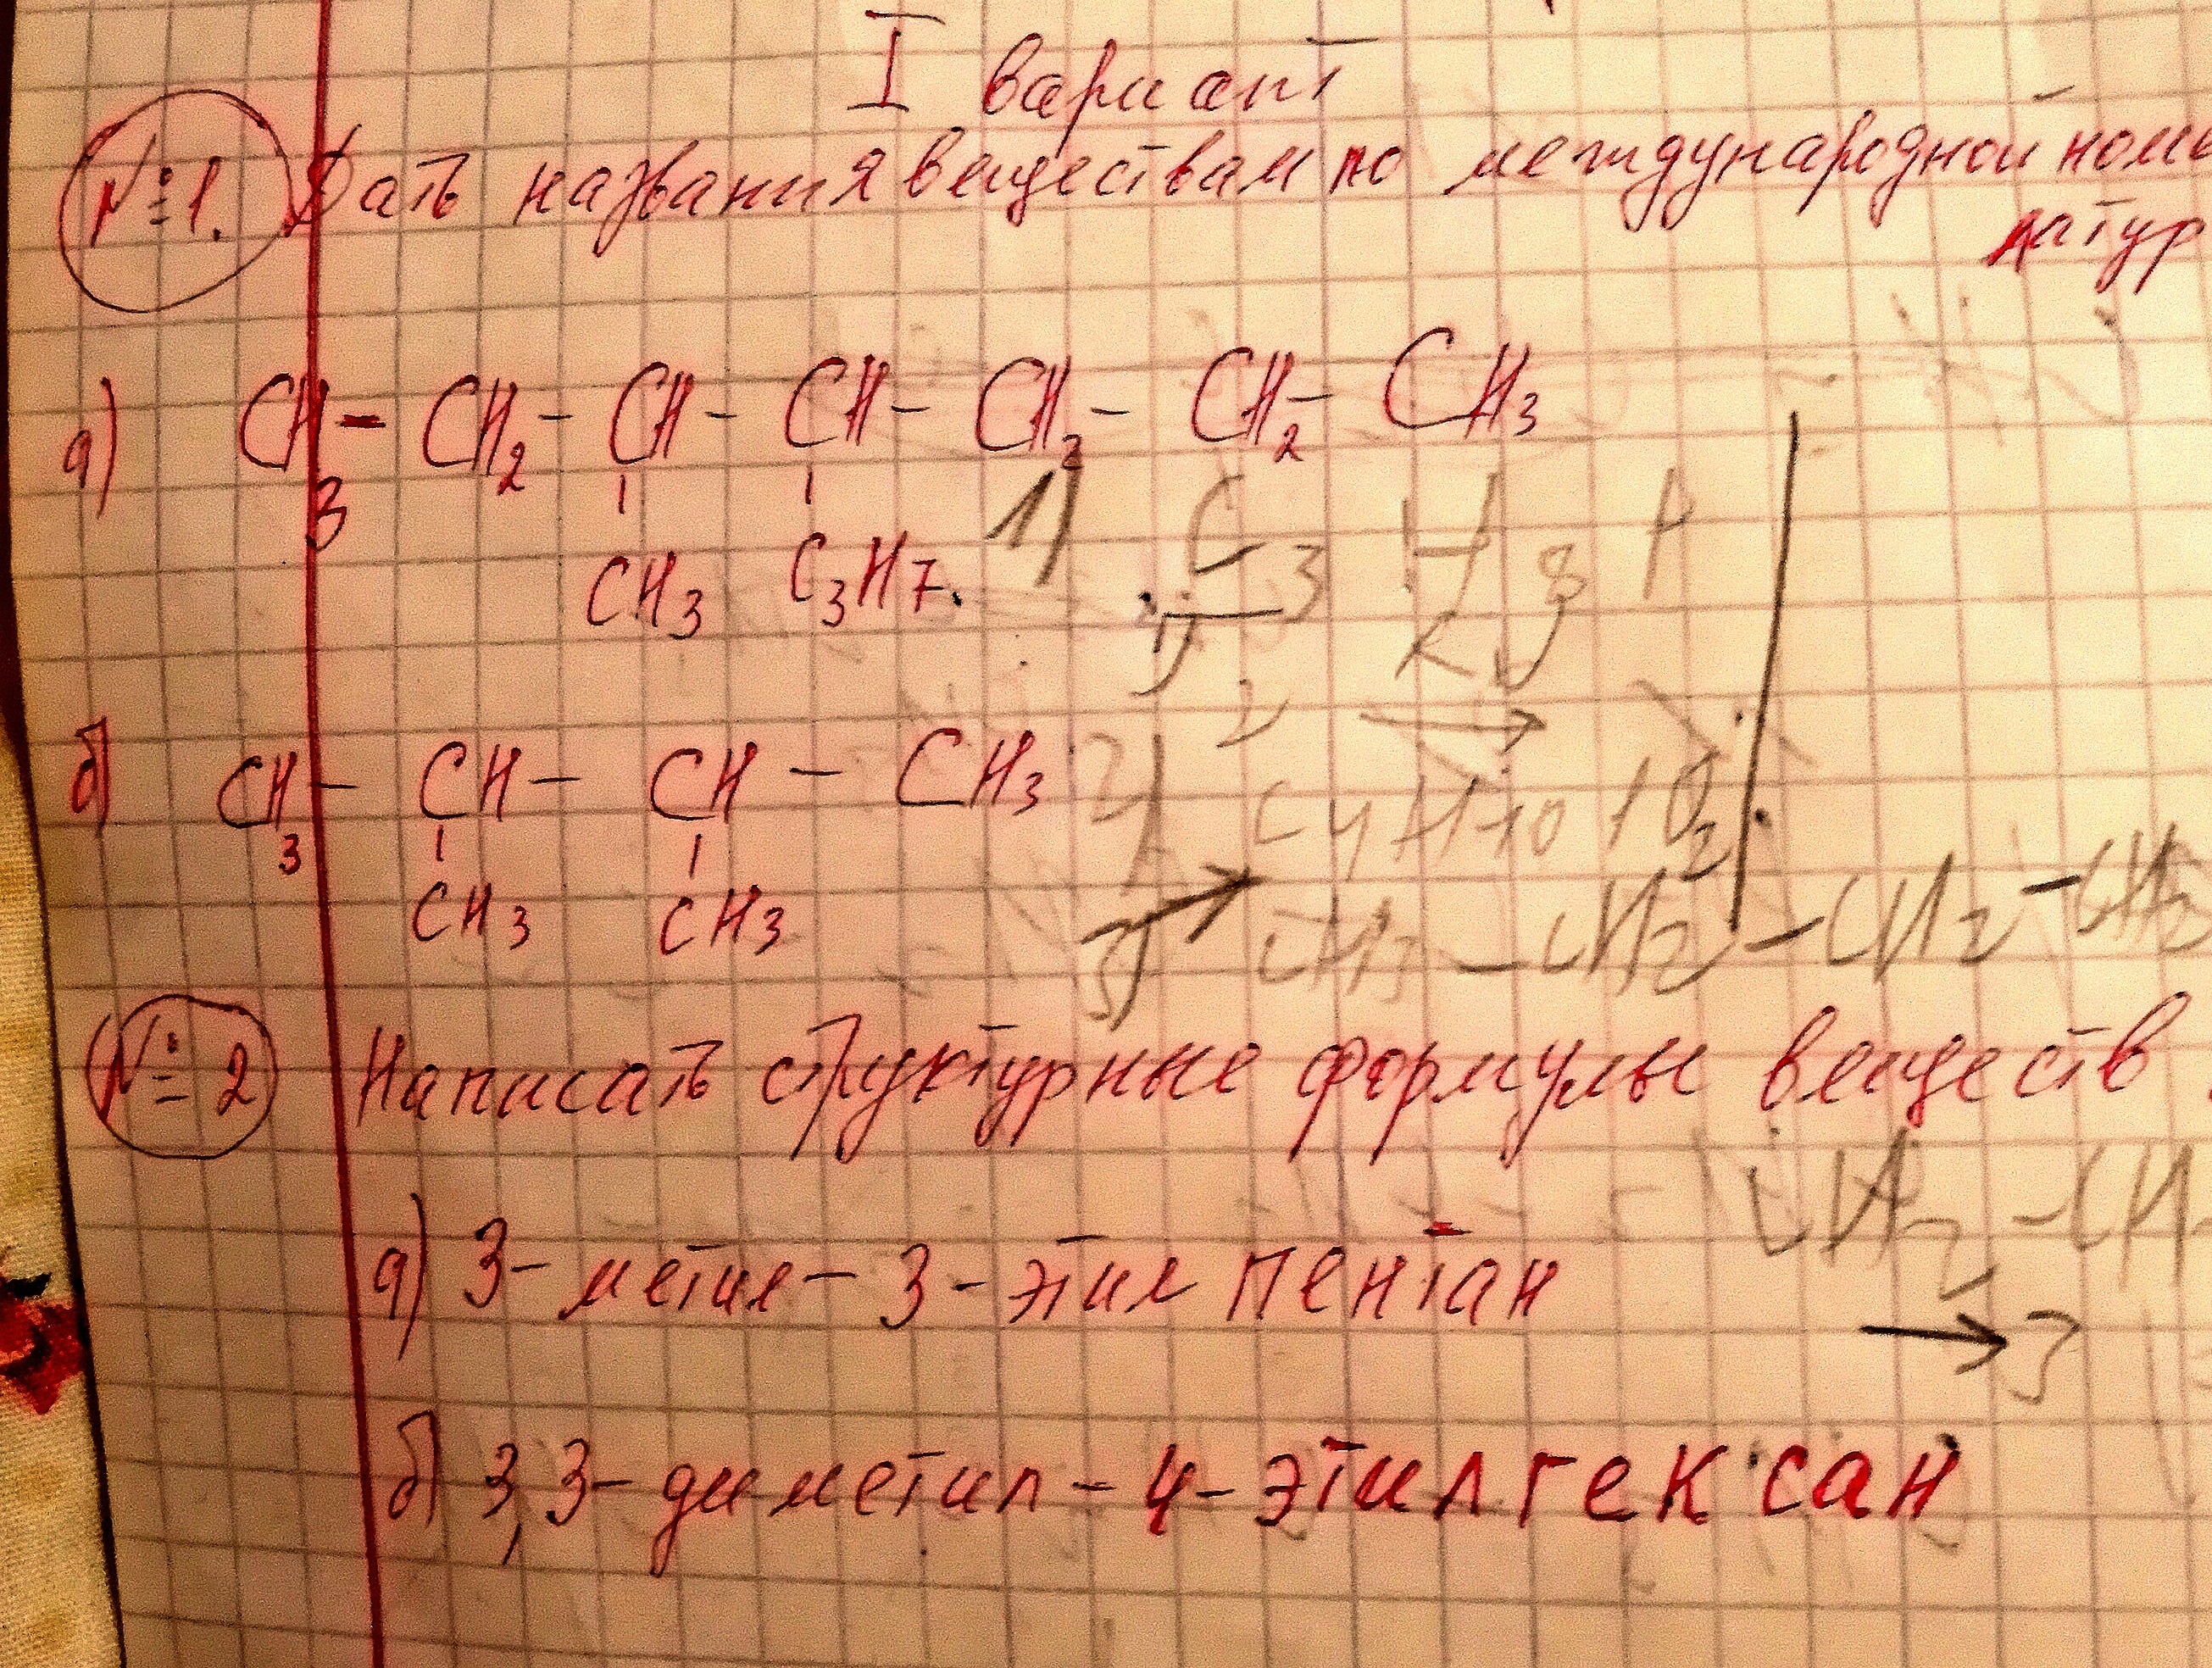 I вариант
№1. Дать названия веществам по международной номе
латур
а) CH3 - CH2 - CH - CH - CH2 - CH2 - CH3
CH3 C3H7.
1) C3H8
б) CH3 - CH - CH - CH3
2) C4H10 + O2
CH3 CH3
3) CH3 - CH2 - CH2 - CH3
№2 Написать структурные формулы веществ.
CH2 - CH
а) 3 - метил - 3 - этил пентан
→ ?
б) 3,3 - диметил - 4 - этилгексан